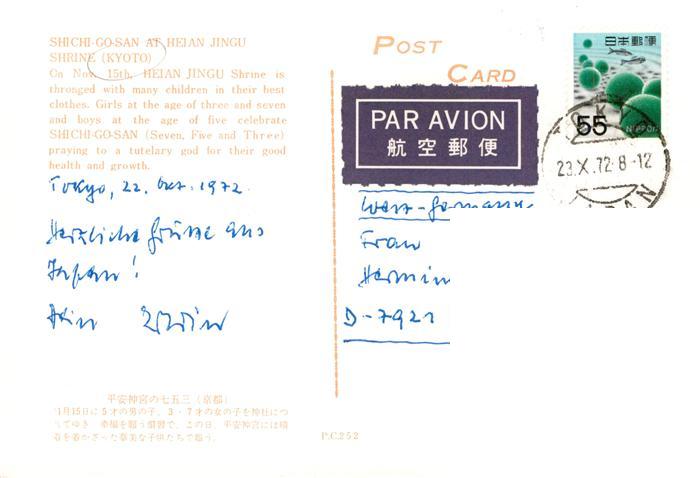 SHICHI-GO-SAN AT HEIAN JINGU
SHRINE (KYOTO)
On Nov. 15th, HEIAN JINGU Shrine is
thronged with many children in their best
clothes. Girls at the age of three and seven
and boys at the age of five celebrate
SHICHI-GO-SAN (Seven, Five and Three)
praying to a tutelary god for their good
health and growth.
Tokyo, 22. Okt. 1972
Herzliche Grüße aus
Japan!
Dein Erwin
平安神宮の七五三（京都）
11月15日に5才の男の子、3・7才の女の子を神社につ
れてゆき 幸福を願う慣習で、この日、平安神宮には晴
着を着かざった華美な子供たちで賑う。
POST
CARD
PAR AVION
航空郵便
日本郵便
55
NIPPON
TOKYO
23.X.72.8-12
JAPAN
West-Germany
Frau
Hermin
D-7921
P.C.252